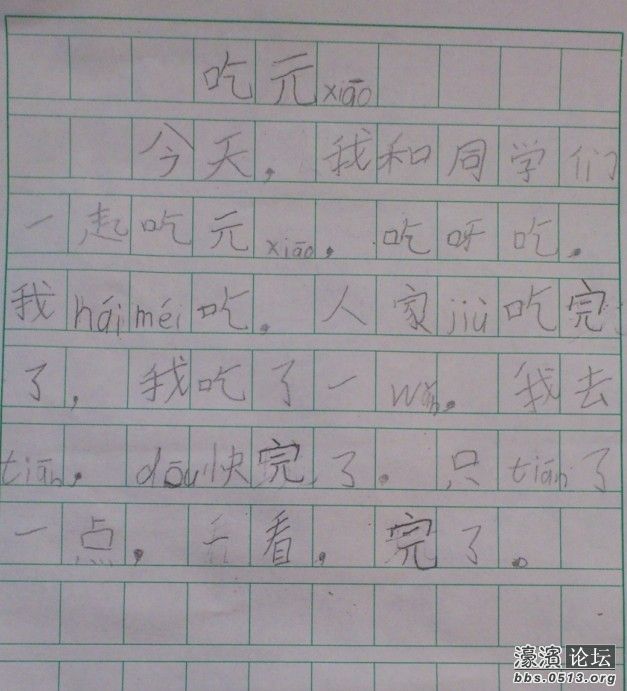 吃元xiāo
今天，我和同学们
一起吃元xiāo，吃呀吃，
我hái méi吃，人家jiù吃完
了，我吃了一wǎn，我去
tiān，dōu快完了，只tiān了
一点，看看，完了。
濠滨论坛
bbs.0513.org